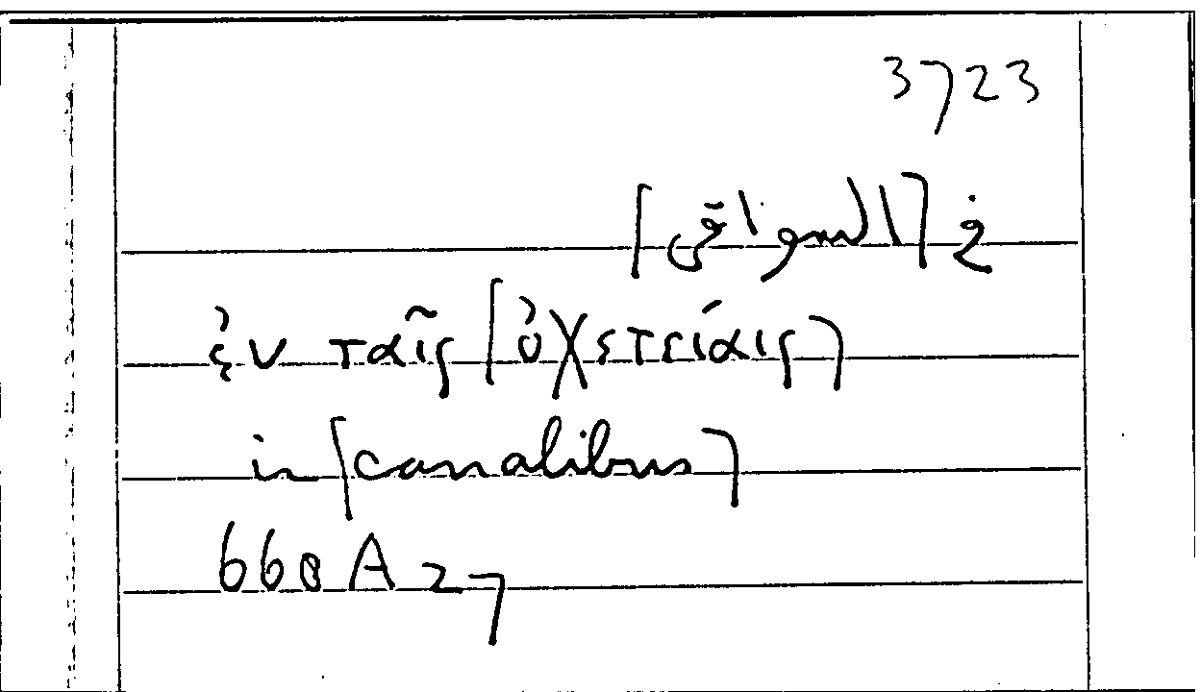 3723
في [السواقى]
ἐν ταῖς [ὀχετείαις]
in [canalibus]
668 A 27